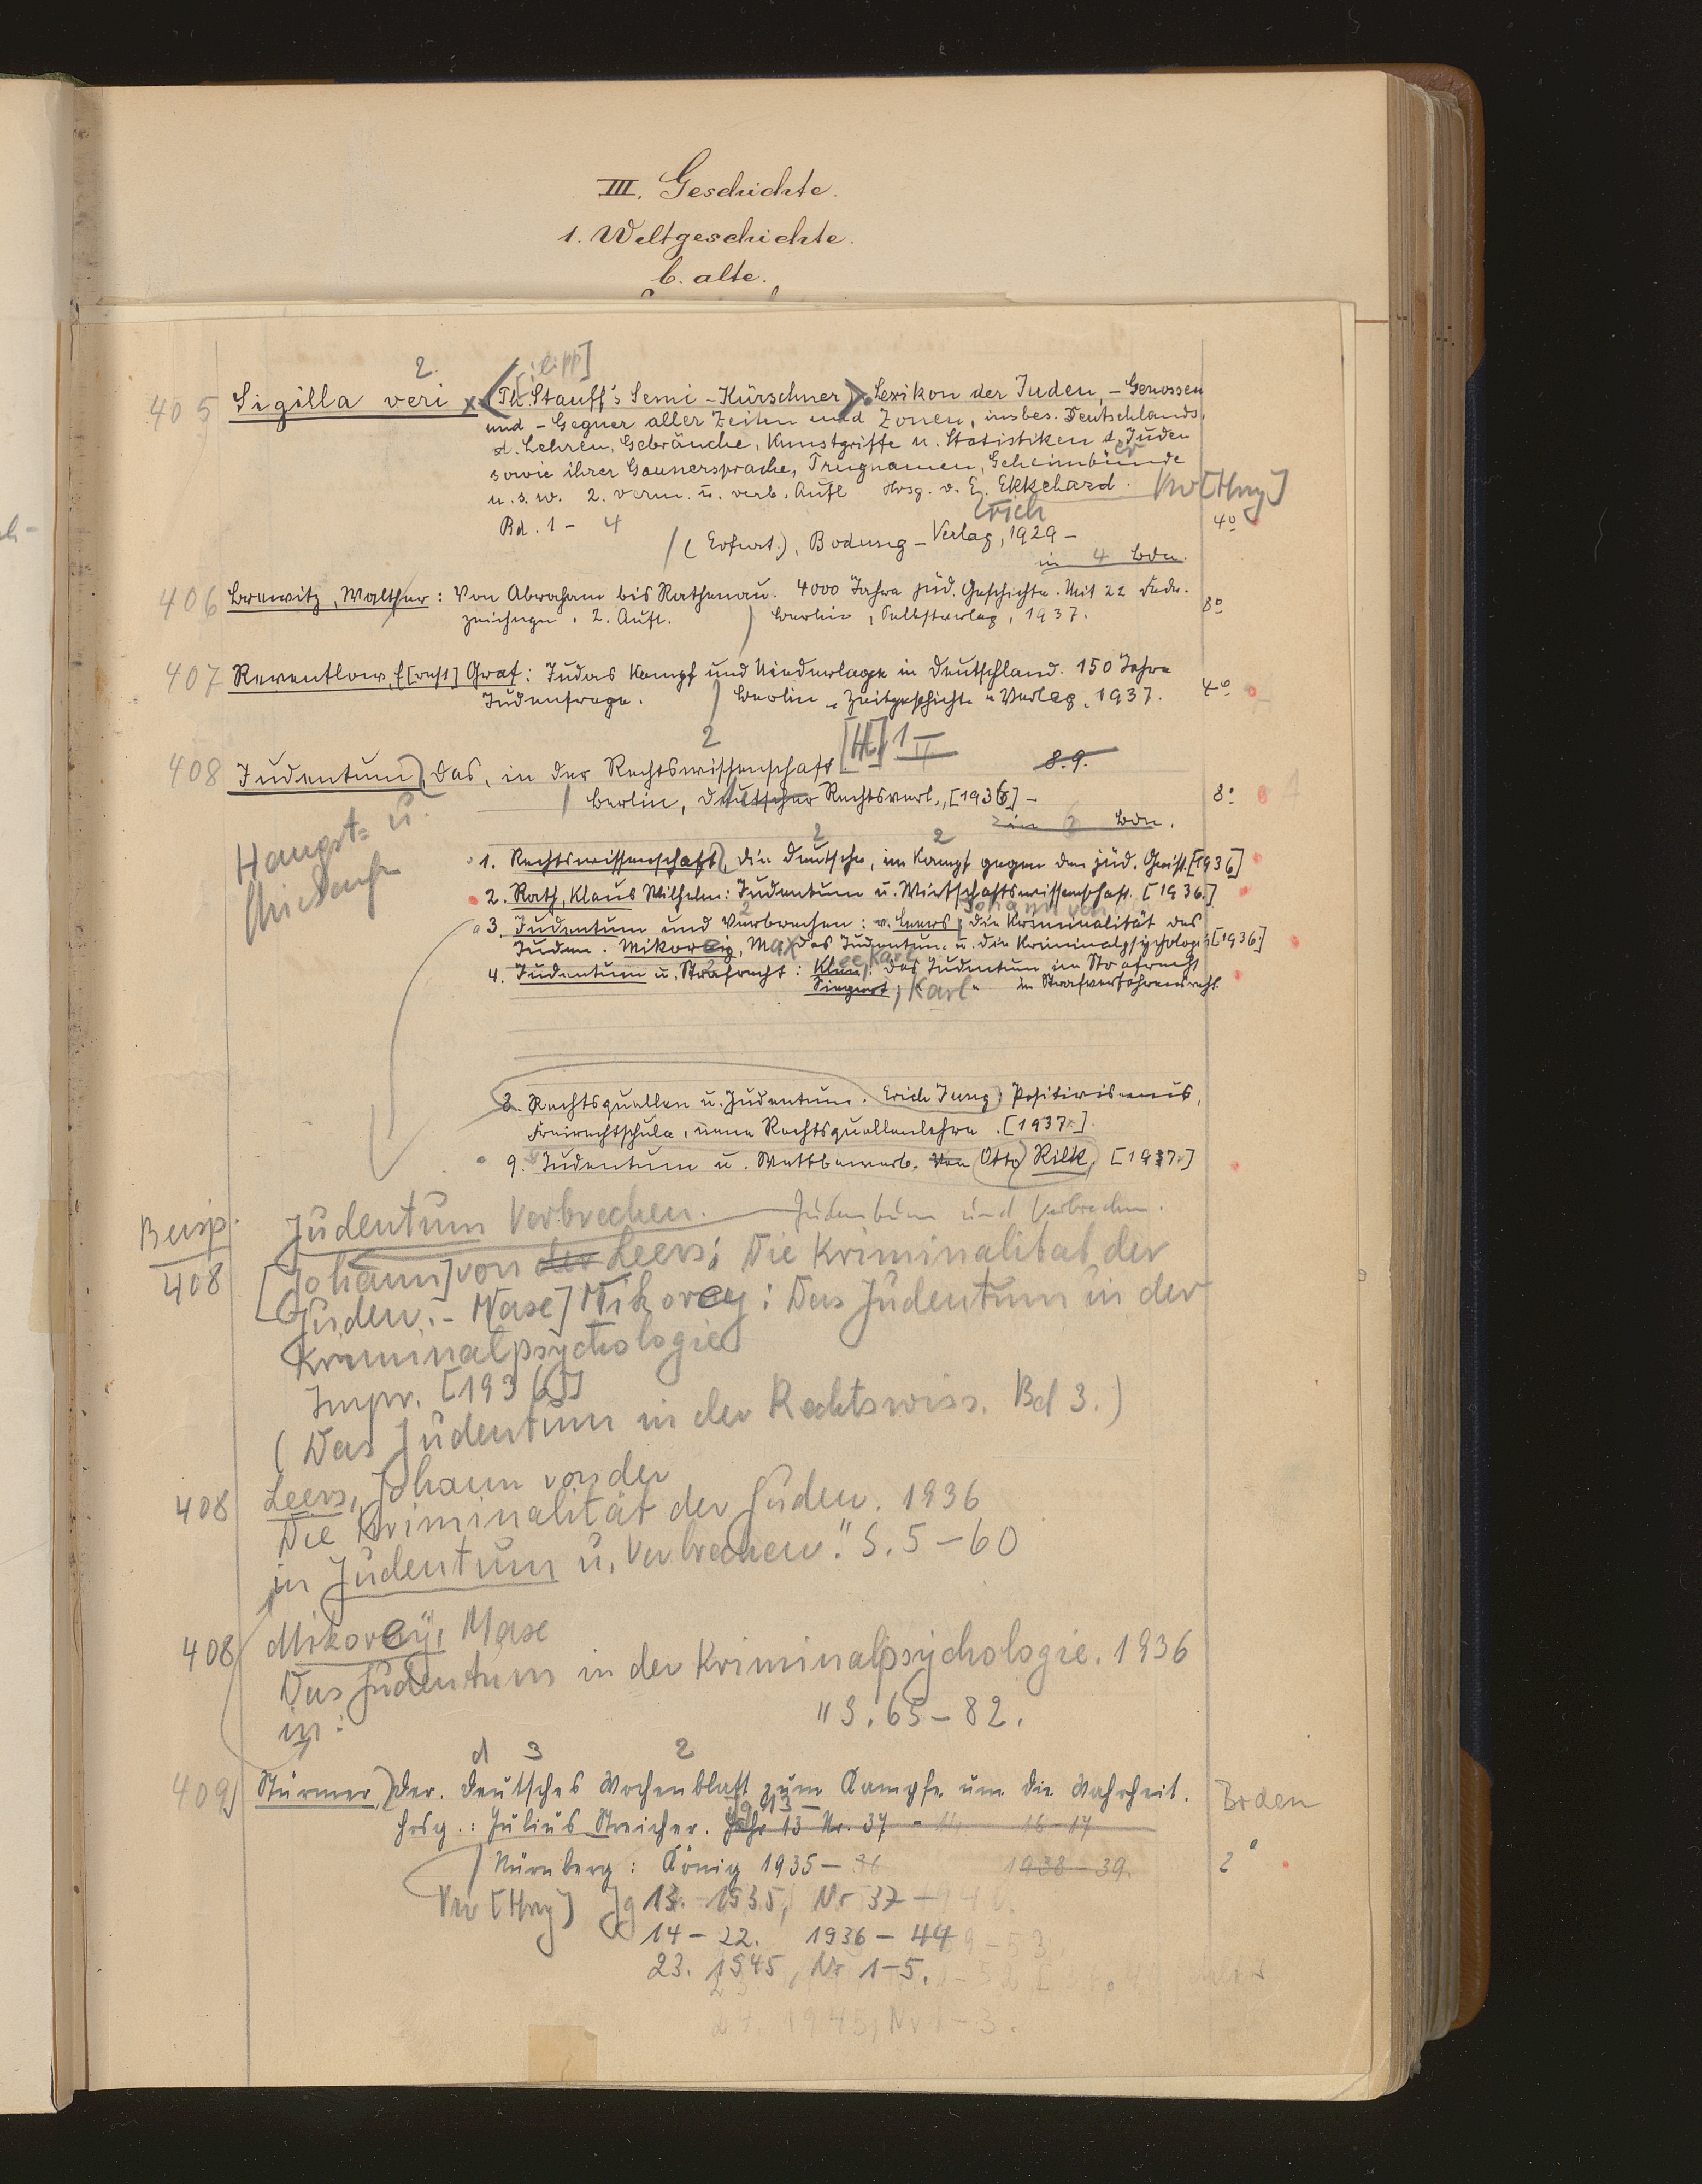 III. Geschichte.
1. Weltgeschichte.
b. alte.
405 Sigilla veri (Ph. Stauff's Semi-Kürschner). Lexikon der Juden, -Genossen
und -Gegner aller Zeiten und Zonen, insbes. Deutschlands,
d. Lehren, Gebräuche, Kunstgriffe u. Statistiken d. Juden
sowie ihrer Gaunersprache, Trugnamen, Geheimbünde
u.s.w. 2. verm. u. verb. Aufl. Hrsg. v. E. Ekkehard.
Erich
Bd. 1 - 4
4°
(Erfurt), Bodung-Verlag, 1929 -
in 4 Bdn.
406 Brewitz, Walther: Von Abraham bis Rathenau. 4000 Jahre jüd. Geschichte. Mit 22 Feder-
zeichngn. 2. Aufl. Berlin, Selbstverlag, 1937.
8°
407 Reventlow, E[rnst] Graf: Judas Kampf und Niederlage in Deutschland. 150 Jahre
Judenfrage. Berlin, Zeitgeschichte-Verlag, 1937.
4°
408 Judentum, Das, in der Rechtswissenschaft
8.9.
Berlin, Deutscher Rechtsverl., [1936] -
8°
in Bdn.
Haupt- u.
1. Rechtswissenschaft, Die Deutsche, im Kampf gegen den jüd. Geist. [1936]
2. Rath, Klaus Wilhelm: Judentum u. Wirtschaftswissenschaft. [1936.]
Johann von
3. Judentum und Verbrechen: v. Leers; Die Kriminalität des
Juden. Mikorey, Max, Das Judentum u. die Kriminalpsychologie [1936]
4. Judentum u. Strafrecht: Klee, Karl: Das Judentum im Strafrecht
Siegert, Karl " im Strafverfahrensrecht.
8. Rechtsquellen u. Judentum. Erich Jung, Positivismus,
Freirechtschule, neue Rechtsquellenlehre. [1937.]
9. Judentum u. Wettbewerb. Von Otto Rilk, [1937.]
408 Judentum Verbrechen. Judentum und Verbrechen.
[Johann] von der Leers; Die Kriminalität der
Juden. - M[axe] Mikorey: Das Judentum in der
Kriminalpsychologie
Impr. [1936]
(Das Judentum in der Rechtswiss. Bd 3.)
408 Leers, Johann von der
Die Kriminalität der Juden. 1936
in Judentum u. Verbrechen." S. 5-60
408 Mikorey, Maxe
Das Judentum in der Kriminalpsychologie. 1936
in: " S. 65-82.
409 Stürmer, Der. Deutsches Wochenblatt zum Kampfe um die Wahrheit.
Hrsg.: Julius Streicher. Jahr 13 Nr. 37 - 16-17
Nürnberg: König 1935-36 1938-39.
2°
Jg 13. 1935, Nr 37 -
14-22. 1936-44
23. 1945, Nr 1-5.
24. 1945, Nr 1-3.